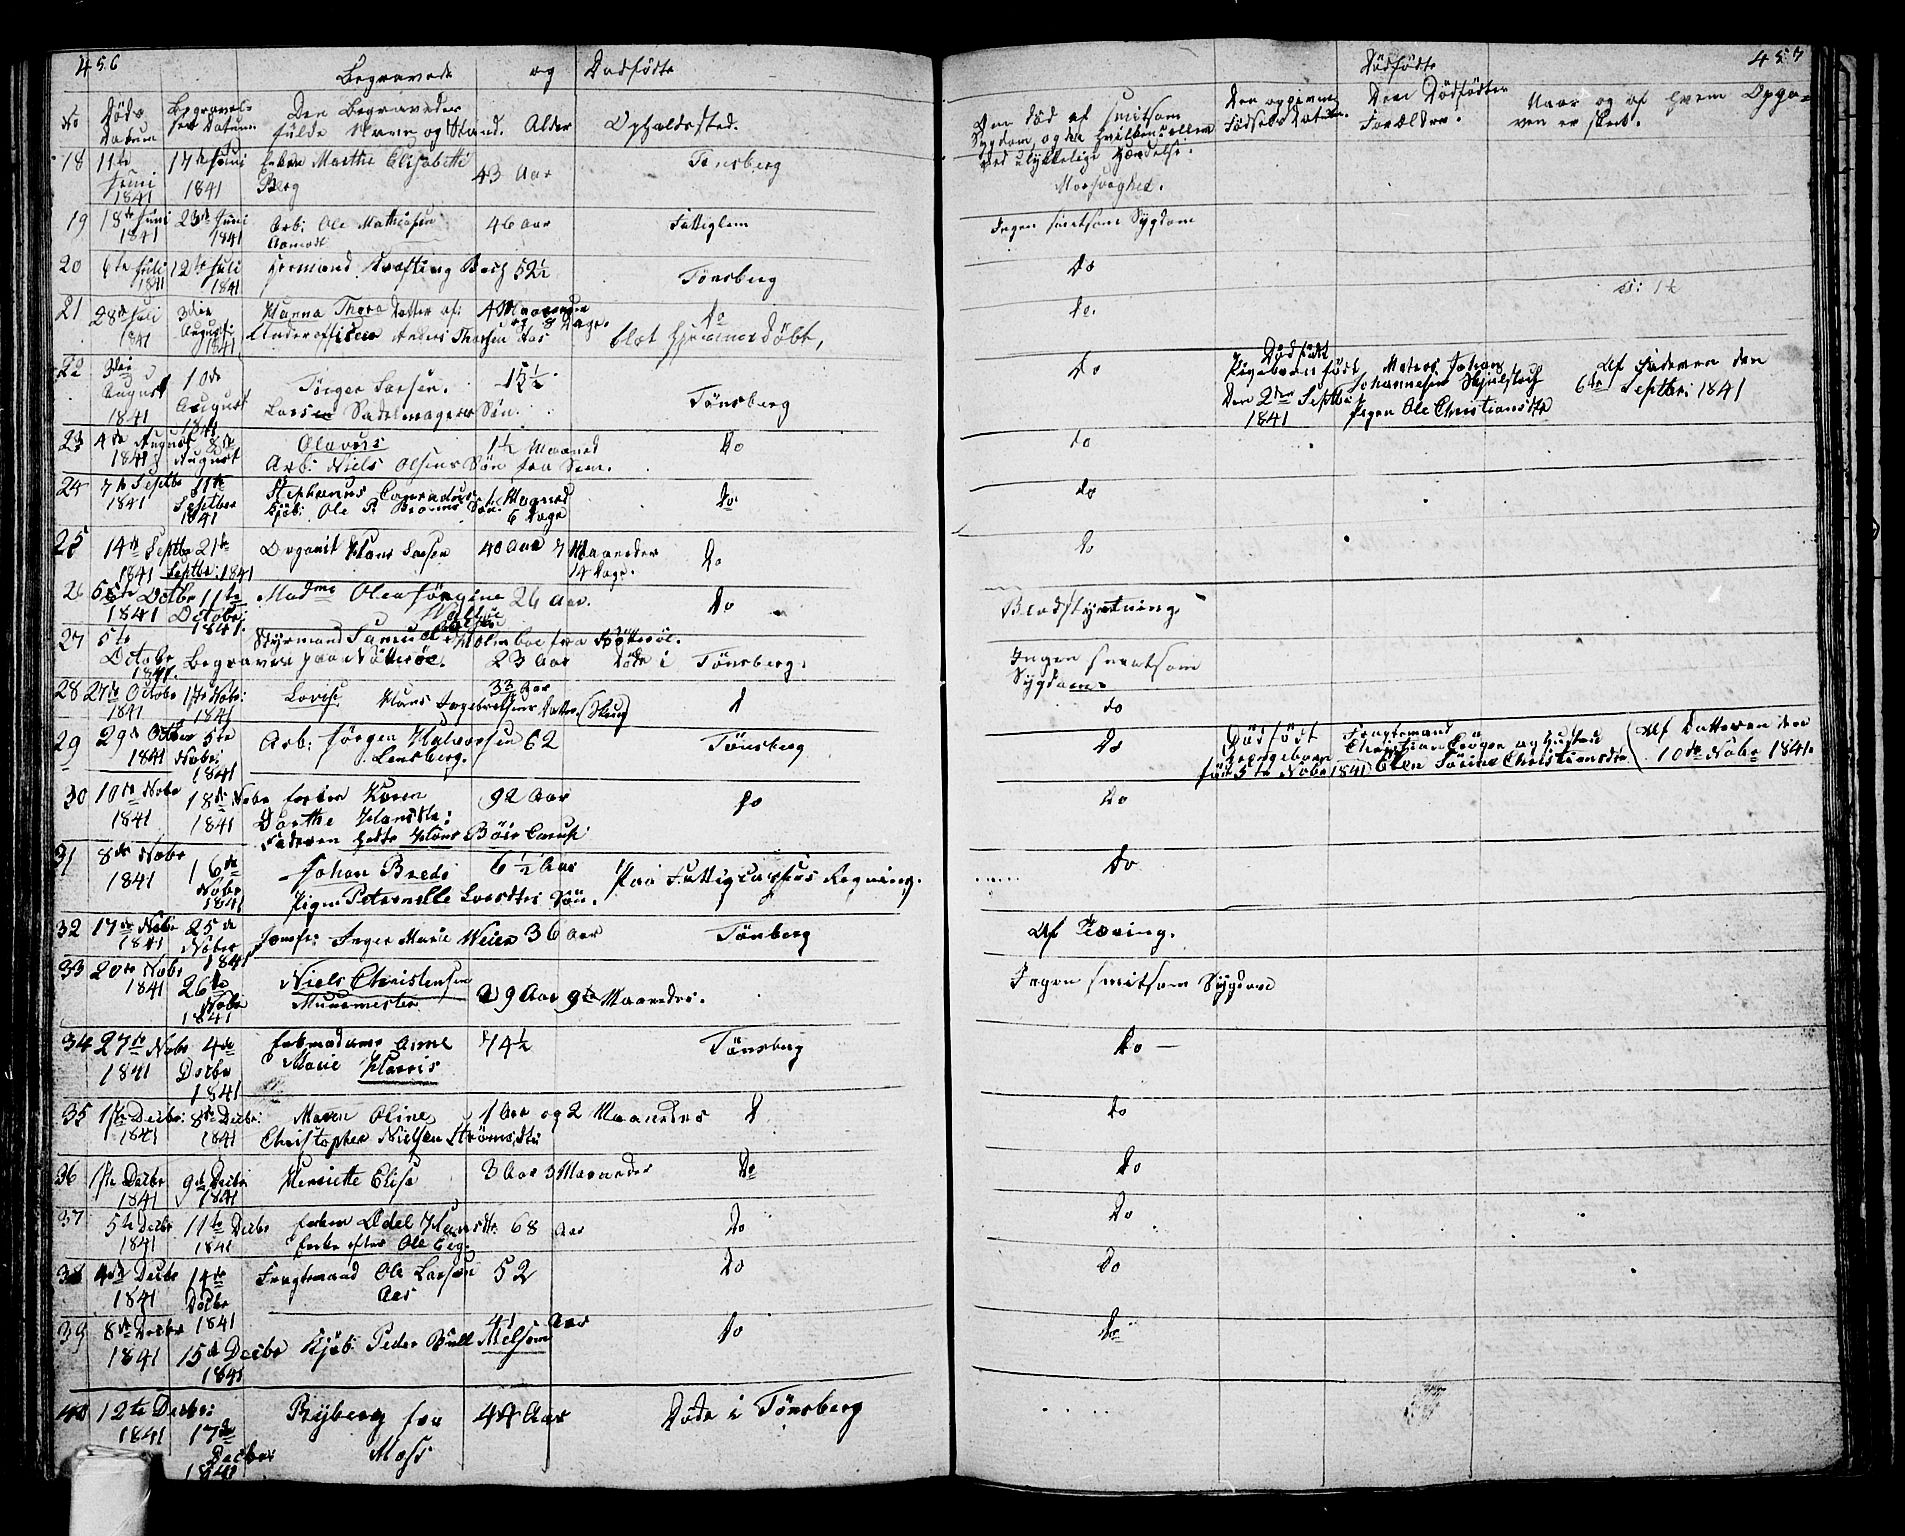 456
Begravede og Dødfødte
No Døds Datum Begravelses Datum Den Begravedes fulde Navn og Stand. Alder Opholdssted.
18 11te Juni 1841 17de Juni 1841 Enken Marthe Elisabeth Berg 43 Aar Tønsberg
19 18de Juni 1841 23de Juni 1841 Arb: Ole Mathiasen 46 Aar Fattiglem
20 6te Juli 1841 12te Juli 1841 Bach 52½ Tønsberg
21 28de Juli 1841 3die August 1841 Hanna Thora Datter af: 4 Maaneder og 8 Dage. do
Underofficeer Anders Thorsen Aas blot hjemmedøbt,
22 3die August 1841 10de August 1841 Jørgen Larsen. 1½ Tønsberg
Larsen Sadelmagers Søn.
23 4de August 1841 8de August Olavus 1½ Maaned do
Arb: Niels Olsens Søn fra Sem.
24 7de Septbr 1841 11te Septber 1841 Stephanus 1 Maaned 6 Dage do
Kjøb: Ole P. Søn.
25 14de Septbr 1841 21de Septbr: 1841 Organist Hans Larsen 40 Aar 7 Maaneder 14 Dage. do
26 5te Octbr 1841 11te Octobr: 1841. Madme Olea Jørgine 26 Aar. do
27 5te Octobr 1841. Styrmand Samuel Holmboe fra Nøtterøe.
Begraven paa Nøtterøe. 23 Aar Døde i Tønsberg.
28 27de Octobr 1841 1ste Nobr: 1841 Lovise Hans Ingebretsens Datter 33 Aar d
29 29de Octbr 1841 5te Nobr: 1841 Arb: Jørgen Halvorsen 62 Tønsberg
Lensberg.
30 10de Nobr 1841 18de Nobr 1841 Enken Karen 92 Aar do
Dorthe Hansdtr:
Faderen hedte Hans
31 8de Nobr 1841 16de Nobr 1841 Johan Brede 6½ Aar Paa Fattigcassens Regning.
Pigen Petronelle Larsdtrs Søn.
32 17de Nobr 1841 25de Nobr 1841 Jomfr: Inger Marie Weier 36 Aar Tønberg
33 20de Nobr 1841 26de Nobr 1841 Niels Christensen 29 Aar 9 Maaneder.
Muurmester
34 27de Nobr 1841 4de Decbr 1841 Enkemadame Anne 74½ Tønsberg
Marie Harris
35 1ste Decbr: 1841 8de Decbr: 1841 Maren Oline 1 Aar og 2 Maaneder d
Christopher Nielsen Strøms dtr
36 1ste Decbr 1841 9de Decbr 1841 Henriette Elise 3 Aar 3 Maaneder do
37 5te Decbr 1841 11te Decbr 1841 Enken Odel Hansdtr 68 Aar do
Enke efter Ole Eeg.
38 4de Decbr 1841 14de Decbr 1841 Fragtemand Ole Larsen 52 do
Aas
39 8de Decbr 1841 15de Decbr 1841 Kjøb: Peder Bull Melsom 41 Aar do
40 12te Decbr: 1841 17de Decbr 1841 Ryberg fra 44 Aar Døde i Tønsberg
Moss
457
Dødfødte
Om død af smitsom Sygdom, og da hvilken eller ved ulykkelige Hændelse. Den opgivne Fødsels Datum. Den Dødfødtes Forældre. Naar og af hvem Opgaven er skeet.
Ingen smitsom Sygdom
do
do.
do Dødfødt Pigebarn født Den 2den Septbr: 1841 Matros Johan Johannesen Pigen Ole Christiansdtr Af Faderen den 6te Septbr: 1841
do
do
do
Blodstyrtning.
Ingen smitsom
Sygdom.
do
do Dødfødt Drengebarn født 5te Nobr 1841 Fragtemand Christian og Hustru Elen Sørine Christiansdtr Af Datteren den 10de Nobr 1841.
do
do
Af Tæring.
Ingen smitsom Sygdom
do
do
do
do
do
do